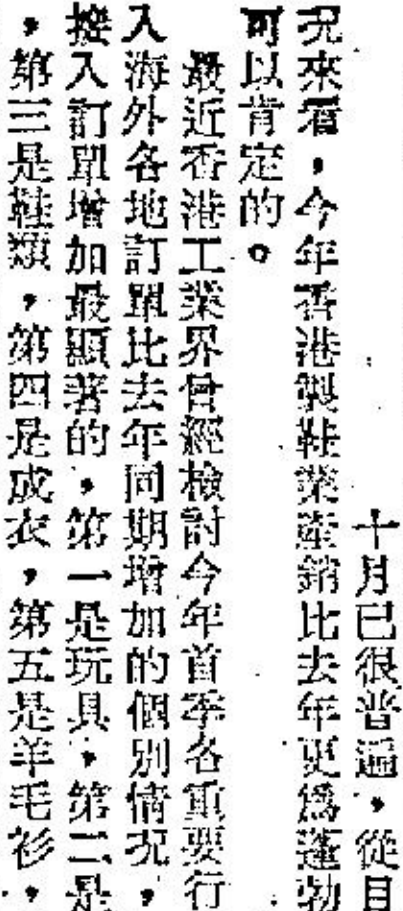 十月已很普遍，從目
況來看，今年香港製鞋業產銷比去年更爲蓬勃
可以肯定的。
最近香港工業界曾經檢討今年首季各重要行
入海外各地訂單比去年同期增加的個別情況，
接入訂單增加最顯著的，第一是玩具，第二是
，第三是鞋類，第四是成衣，第五是羊毛衫，